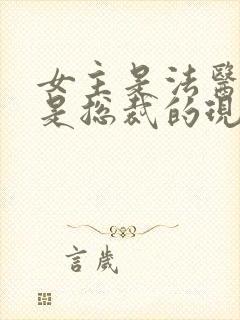 女主是法醫
是总裁的現
言歲